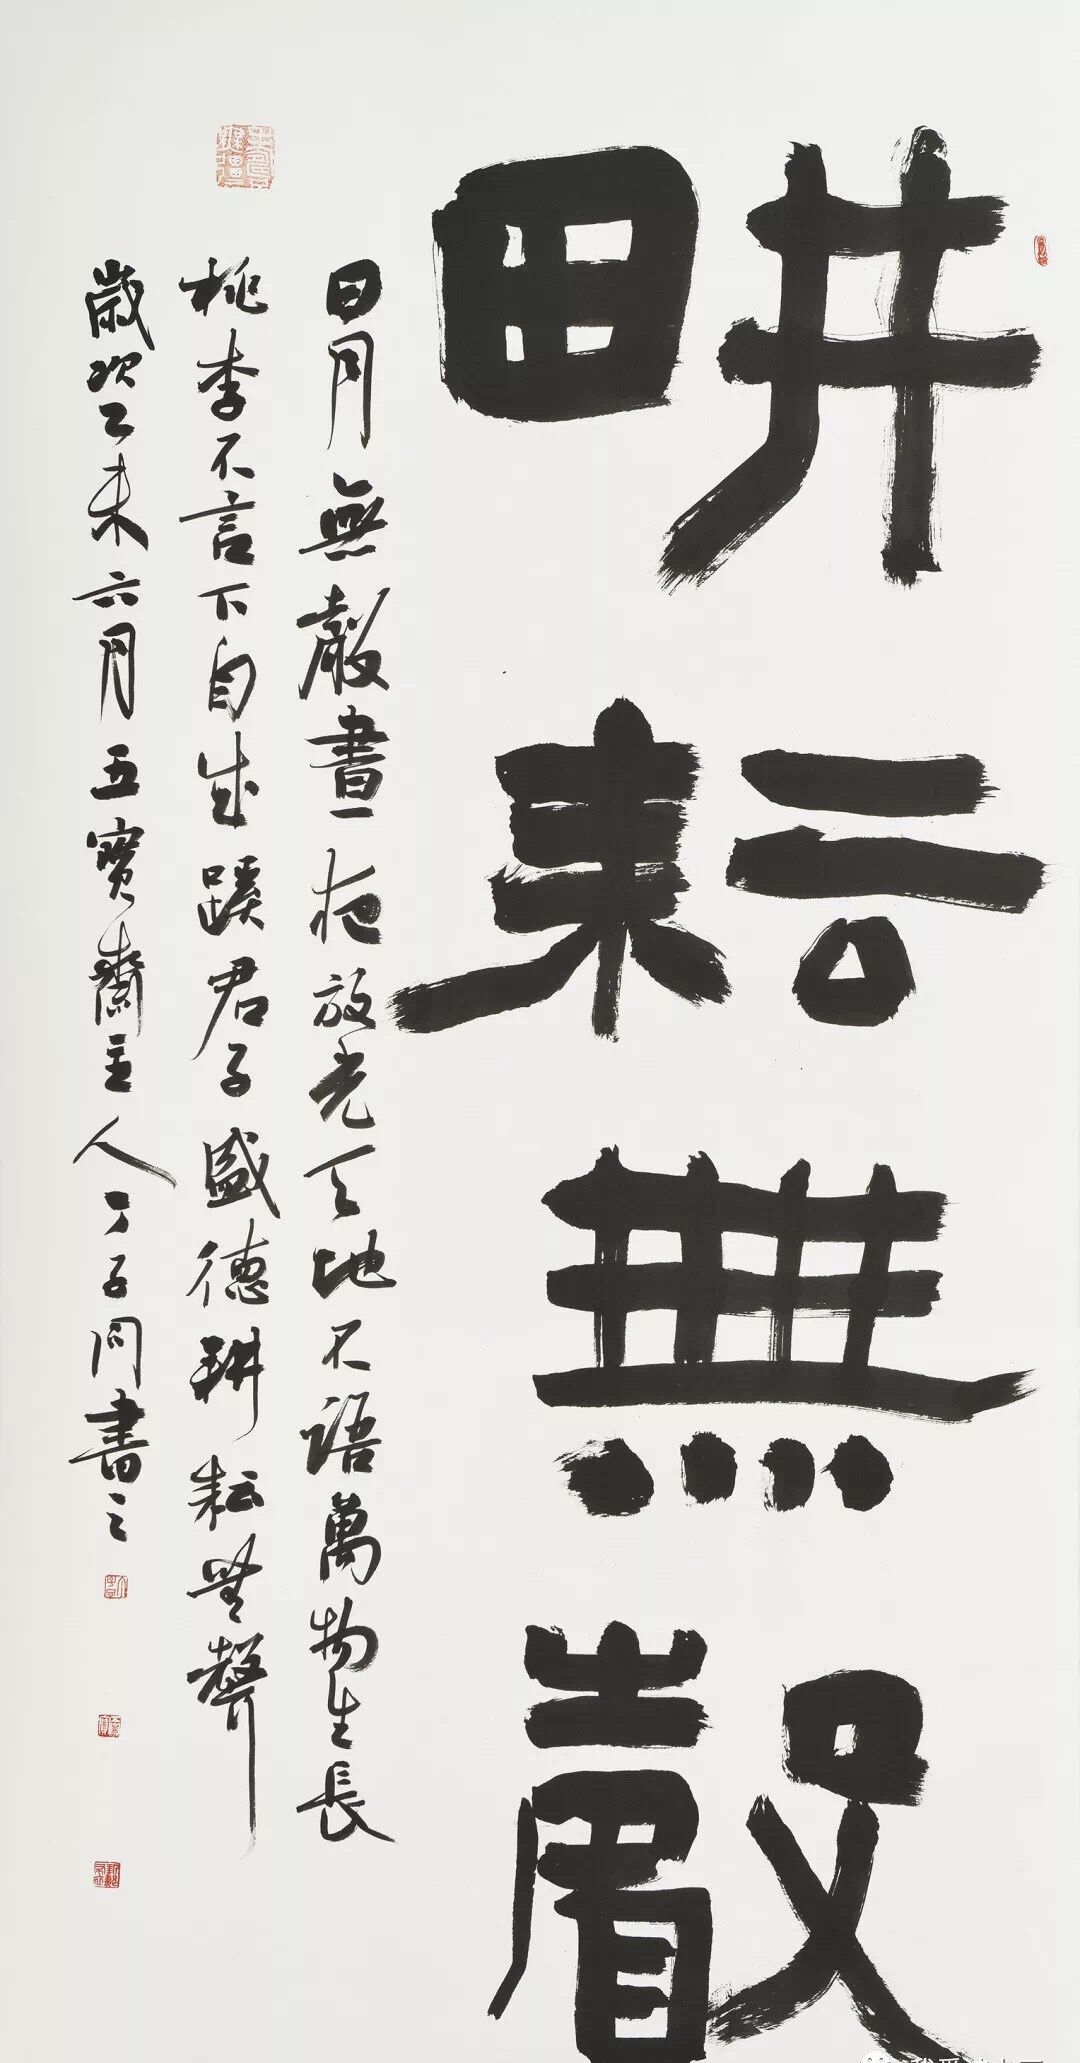 畊耘無聲
日月無聲晝夜放光天地不語萬物生長
桃李不言下自成蹊君子盛德耕耘無聲
歲次乙未六月五寶齋主人丁子同書之